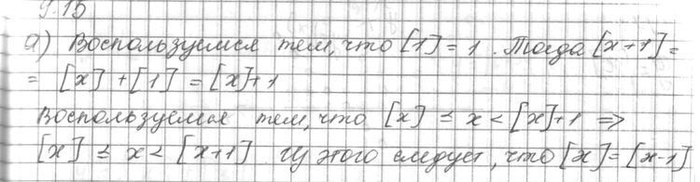 9.15
а) Воспользуемся тем, что [1] = 1. Тогда [x+1] =
= [x] + [1] = [x]+1
Воспользуемся тем, что [x] ≤ x < [x]+1 ⇒
[x] ≤ x < [x+1] Из этого следует, что [x] = [x-1]